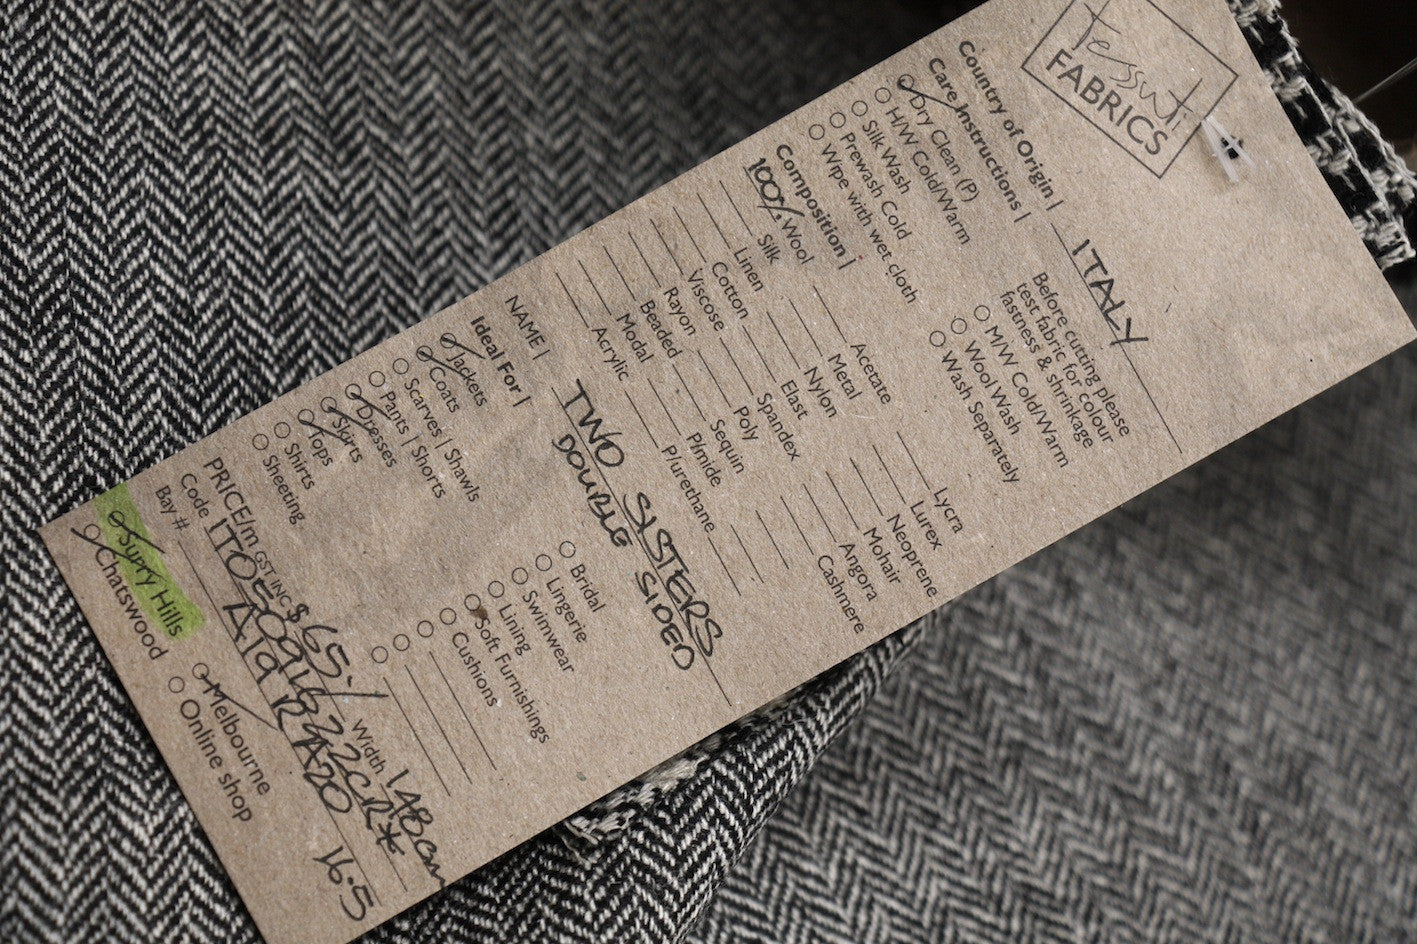 Tessuti
FABRICS
Country of Origin | ITALY
Care Instructions |
Dry Clean (P)
H/W Cold/Warm
Silk Wash
Prewash Cold
Wipe with wet cloth
Before cutting please
test fabric for colour
fastness & shrinkage
M/W Cold/Warm
Wool Wash
Wash Separately
Composition |
100% Wool
Silk
Linen
Cotton
Viscose
Rayon
Beaded
Modal
Acrylic
Acetate
Metal
Nylon
Elast
Spandex
Poly
Sequin
P/mide
P/urethane
Lycra
Lurex
Neoprene
Mohair
Angora
Cashmere
NAME | TWO SISTERS
DOUBLE SIDED
Ideal For |
Jackets
Coats
Scarves | Shawls
Pants | Shorts
Dresses
Skirts
Tops
Shirts
Sheeting
Bridal
Lingerie
Swimwear
Lining
Soft Furnishings
Cushions
PRICE/m GST INC $65.- Width 148cm
Code
Bay # A19 16.5
Surry Hills
Chatswood
Melbourne
Online shop